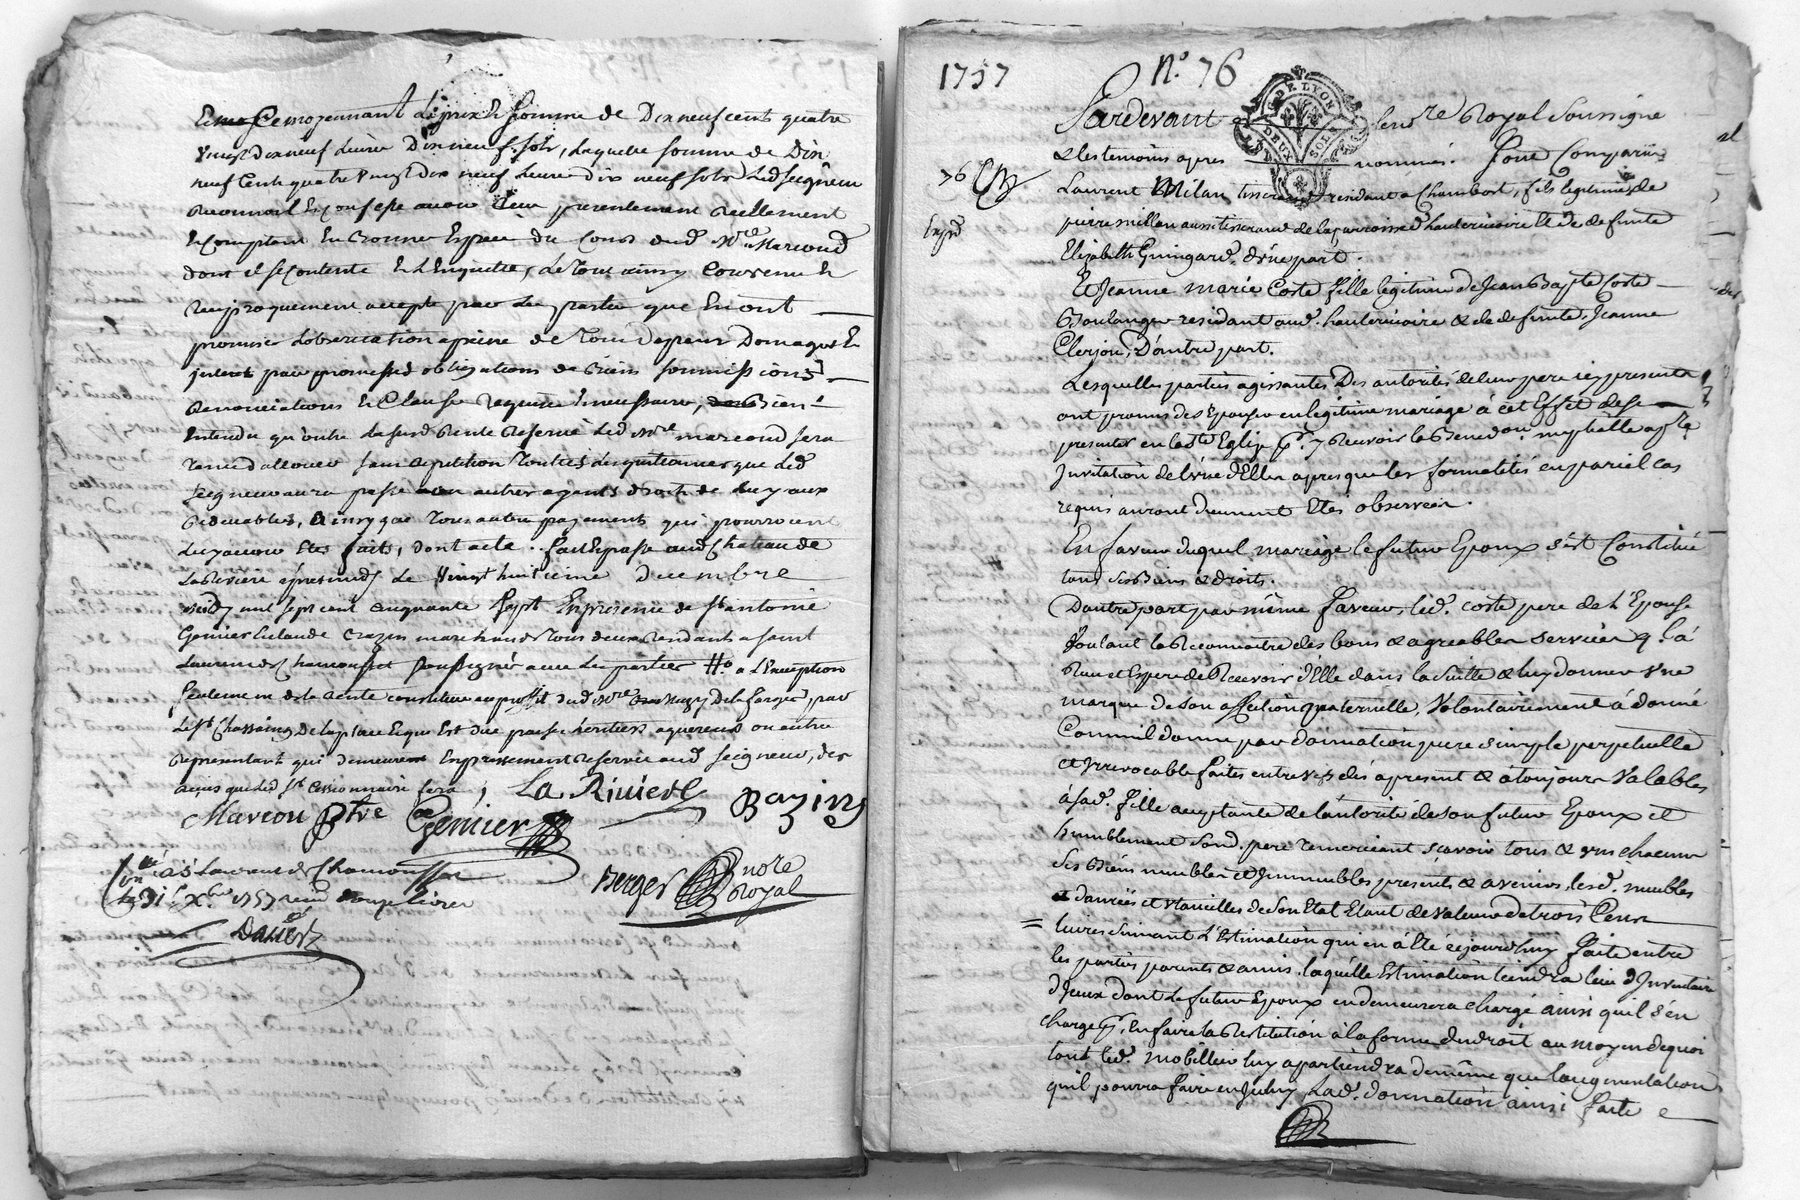 moyennant le prix & somme de Dixneuf cent quatre
vingt dix neuf Livre Dix neuf sols, Laquelle somme de Dix
neuf Cent quatre vingt dix neuf Livre dix neuf sols Led seigneur
presentement Reellement
Comptant En bonne Espece du Cours dud Mre Marcoud
dont il se contente & L'Enquitte, Le Tout ainsy Convenu &
reciproquement accepté par Les parties que En ont
promis Lobservation a peine de Tous Depens Domages &
interet par promesses obligations de biens soumissions
Renonciations & Clause requise & necessaire, Bien
Entendu qu'outre La susd Rente Reservé Led Mre marcoud sera
tenu d'allouer sans repetition Toutes Les quittances que Led
seigneur aura passé aux autres agents de
redevables, ainsy que Tous autre payements qui pourroient
Luy avoir Eté faits, dont acte. fait & passé aud Chateau de
La Riviere apres midy Le vingt huitieme decembre
mil sept cent cinquante Sept En presence de Sr antoine
Genier & Claude Bazin marchand tous deux residants a saint
Laurent de Chamousset soussignés avec Les parties a L'Exception
seulement de la Rente constituée au profit dud Mre De la farge, par
Le Sr Chassaing De la place & que Est due par ses heritiers aquereurs ou autre
Representant qui demeurent Expressement Reservée aud seigneur, des
Cessionnaire sera, La Riviere Bazin
Marcou Ptre Genier
à St Laurent de Chamousset Berger nore
Le 31e Xbre 1757 reçu douze livres Royal
1757 n.º 76
G. DE LYON
DEUX SOLS
Pardevant le nore Royal Soussigné
& les temoins apres nommés. Fure Comparus
76
Laurent Milan tisserand residant a Chambost, fils legitime de
pierre millan aussi tisserand de la parroisse d'hauterivoire & de defunte
Expéd
Elizabeth Guingard. d'une part.
Et Jeanne marie Coste fille legitime de Jean Baptiste Coste
Boulanger residant aud. hauterivoire & de defunte Jeanne
Clerjon, D'autre part.
Lesquelles parties agissantes Des autorités de leur pere icy presents
ont promis de s'Epouser en legitime mariage à cet Effet de se
presenter en la Ste Eglise pr. y Recevoir la Benedon. nuptialle a pre
Invitation de l'une d'Elles apres que les formalités en pareil cas
requis auront duement Etés observées.
En faveur duquel mariage le futur Epoux s'est Constitué
tous ses Biens & droits.
D'autre part par même faveur, led. coste pere de l'Epouse
Voulant la Reconnoitre des bons & agreables services q. l'a
Reçu et Espere de Recevoir d'Elle dans la suitte & luy donner une
marque de son affection paternelle, Volontairement á donné
Comme il donne par donnation pure simple perpetuelle
et irrevocable faites entre vifs dés apresent & a toujours Valables
á sad. fille acceptante de l'autorité de son futur Epoux et
humblement sond. pere remerciant sçavoir tous & uns chacuns
ses Biens meubles et Immeubles presents & avenirs, lesd. meubles
danrées et Utancilles de son Etat Etant de valeur de trois Cens
livres suivant L'Estimation qui en á Eté cejourd'huy faite entre
les parties parents & amis, laquelle Estimation tiendra lieu d'Inventaire
d'Iceux dont Le futur Epoux en demeurera chargé ainsi qu'il s'en
charge pr. en faire la Restitution á la forme du droit au moyen de quoi
tout led. mobillier luy apartiendra de même que l'augmentation
qu'il pourra faire en Icelluy Lad. donnation ainsi faite &